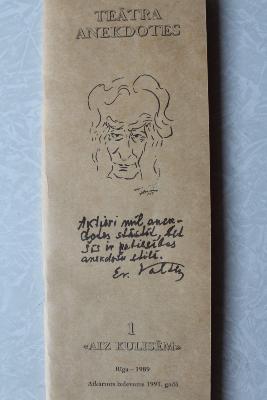 TEĀTRA
ANEKDOTES
Aktieri mīl anek-
dotes stāstīt, bet
šīs ir patiesības
anekdošu stilā.
Ev. Valters
1
«AIZ KULISĒM»
Rīga – 1989
Atkārtots izdevums 1993. gadā